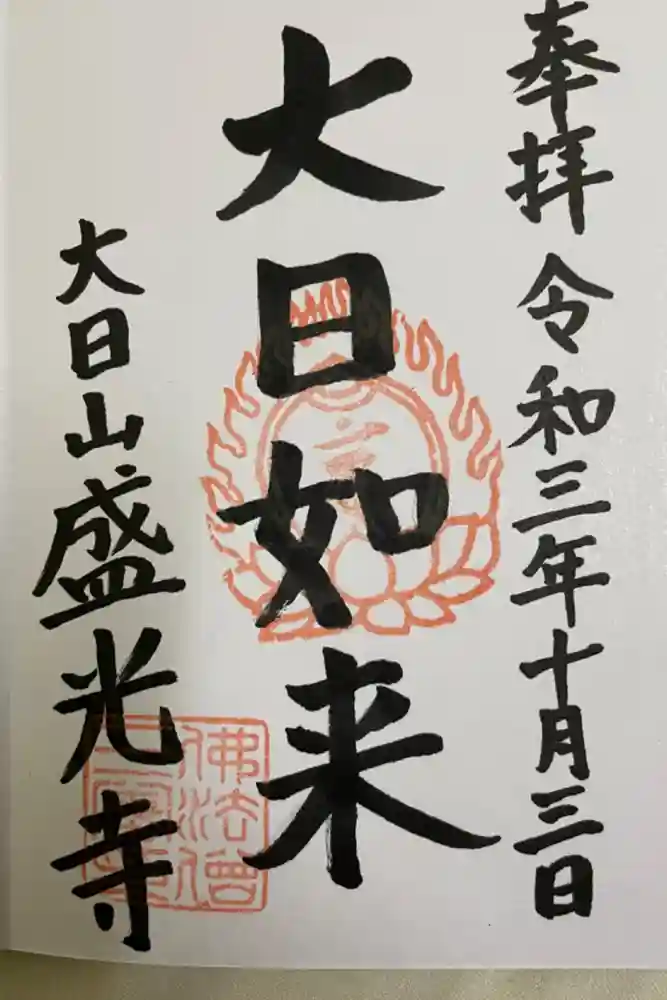 奉拝 令和三年十月三日
大日如来
大日山盛光寺
佛法僧
三寳